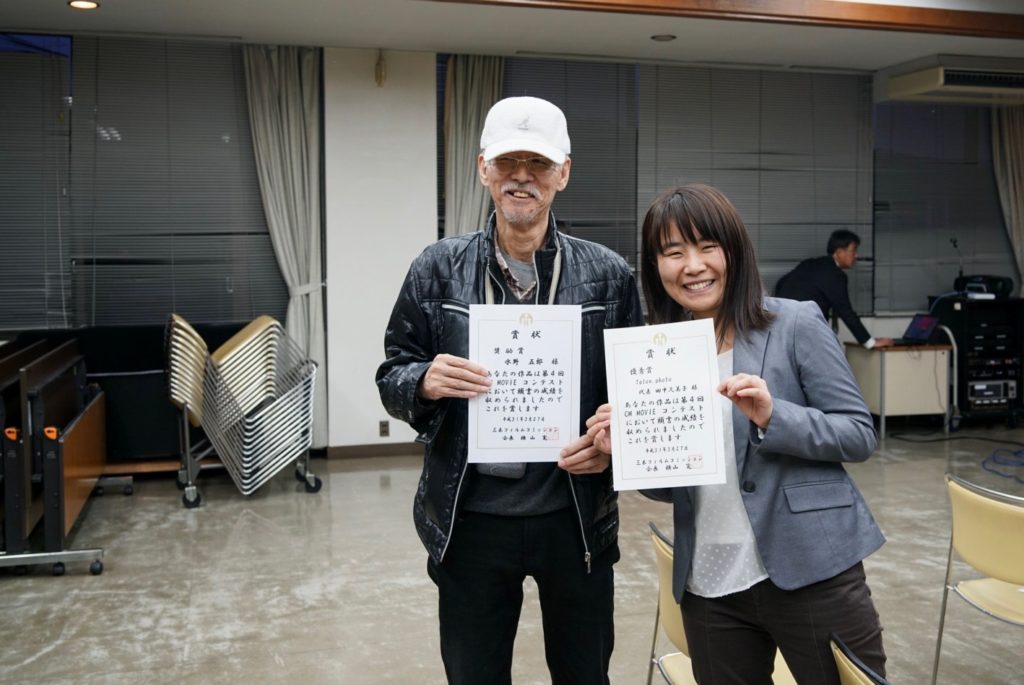 賞状
奨励賞
水野 五郎 様
あなたの作品は第4回
CM MOVIE コンテスト
において頭書の成績を
収められましたので
これを賞します
平成31年3月27日
三木フィルムコミッション
会長 横山 寛
賞状
優秀賞
Totan.photo
代表 田中久美子 様
あなたの作品は第4回
CM MOVIE コンテスト
において頭書の成績を
収められましたので
これを賞します
平成31年3月27日
三木フィルムコミッション
会長 横山 寛